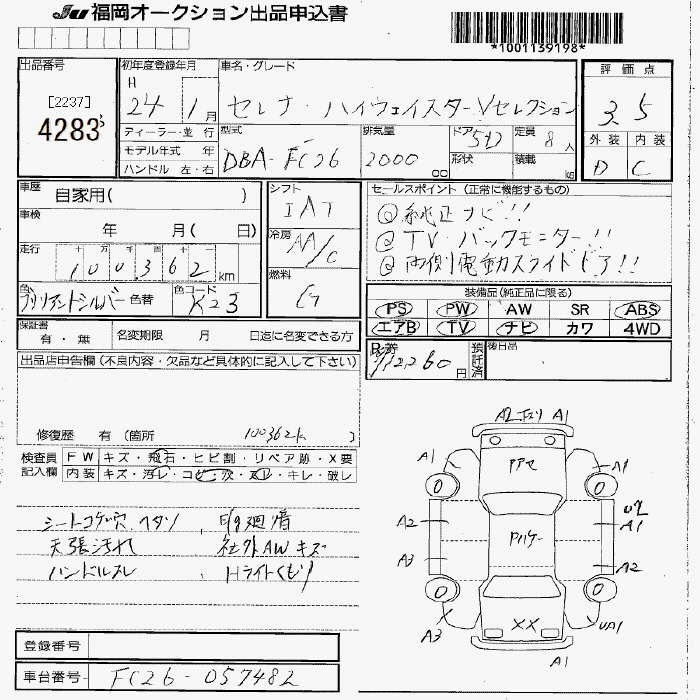 JU 福岡オークション出品申込書
*1001139198*
出品番号
[2237]
4283
初年度登録年月
H
24年 1月
車名・グレード
セレナ・ハイウェイスターVセレクション
評価点
3.5
外装 内装
D C
ディーラー・並行
モデル年式 年
ハンドル 左・右
型式
DBA-FC26
排気量
2000
cc
ドア
5D
形状
定員
8人
積載
kg
車歴
自家用( )
車検
年 月( 日)
走行
十 万 千 百 十 一
100,362 km
色
ブリリアントシルバー 色替
色コード
K23
シフト
IAT
冷房
AA/C
燃料
G
セールスポイント(正常に機能するもの)
◎純正ナビ!!
◎TV・バックモニター!!
◎両側電動スライドドア!!
装備品(純正品に限る)
PS PW AW SR ABS
エアB TV ナビ カワ 4WD
保証書
有・無
名変期限 月 日迄に名変できる方
R券
12260円
預託済
後日品
出品店申告欄(不良内容・欠品など具体的に記入して下さい)
修復歴 有(箇所 100362k )
検査員記入欄
FW キズ・飛石・ヒビ割・リペア跡・X要
内装 キズ・汚レ・コゲ・穴・スレ・キレ・破レ
シートコゲ穴 ヘタリ
天張汚れ
ハンドルスレ
E/g廻音
社外AW キズ
Hライトくもり
A2 A1
A1 アアセ A1
0 0
A2 U2 A1
A3 A2
0 0
A3 XX UA1
A1
登録番号
車台番号 FC26-057482